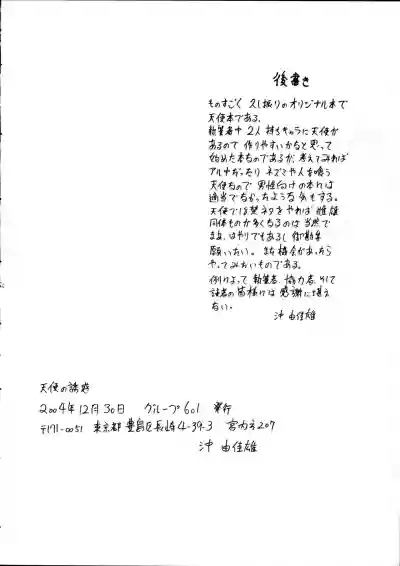 後書き
ものすごく 久し振りのオリジナル本で
天使本である。
執筆者中 2人 持ちキャラに天使が
あるので 作りやすいかなと思って
始めた本なのであるが、考えてみれば
アル中だったり ネズミや人を喰う
天使なので 男性向けの本には
適当でなかったような気もする。
天使で ネタをやれば 雌雄
同体ものが多くなるのは 当然で
まあ、はやりでもあるし 御勘弁
願いたい。 また機会があったら
やってみたいものである。
例によって 執筆者、協力者、そして
読者の皆様には 感謝に堪え
ない。
沖 由佳雄
天使の誘惑
2004年12月30日 グループ601 発行
〒171-0051 東京都 豊島区長崎4-39-3 宮内方207
沖 由佳雄